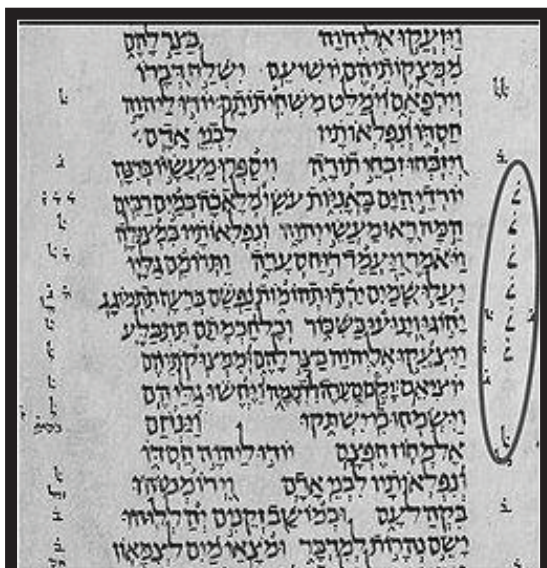 ויזעקו אל יהוה בצר להם
ממצקותיהם יושיעם ישלח דברו
וירפאם וימלט משחיתותם יודו ליהוה
חסדו ונפלאותיו לבני אדם
ויזבחו זבחי תודה ויספרו מעשיו ברנה
יורדי הים באניות עשי מלאכה במים רבים
המה ראו מעשי יהוה ונפלאותיו במצולה
ויאמר ויעמד רוח סערה ותרומם גליו
יעלו שמים ירדו תהומות נפשם ברעה תתמוגג
יחוגו וינועו כשכור וכל חכמתם תתבלע
ויצעקו אל יהוה בצר להם וממצוקתיהם
יוציאם יקם סערה לדממה ויחשו גליהם
וישמחו כי ישתקו וינחם
אל מחוז חפצם יודו ליהוה חסדו
ונפלאותיו לבני אדם וירוממוהו
בקהל עם ובמושב זקנים יהללוהו
ישם נהרות למדבר ומצאי מים לצמאון